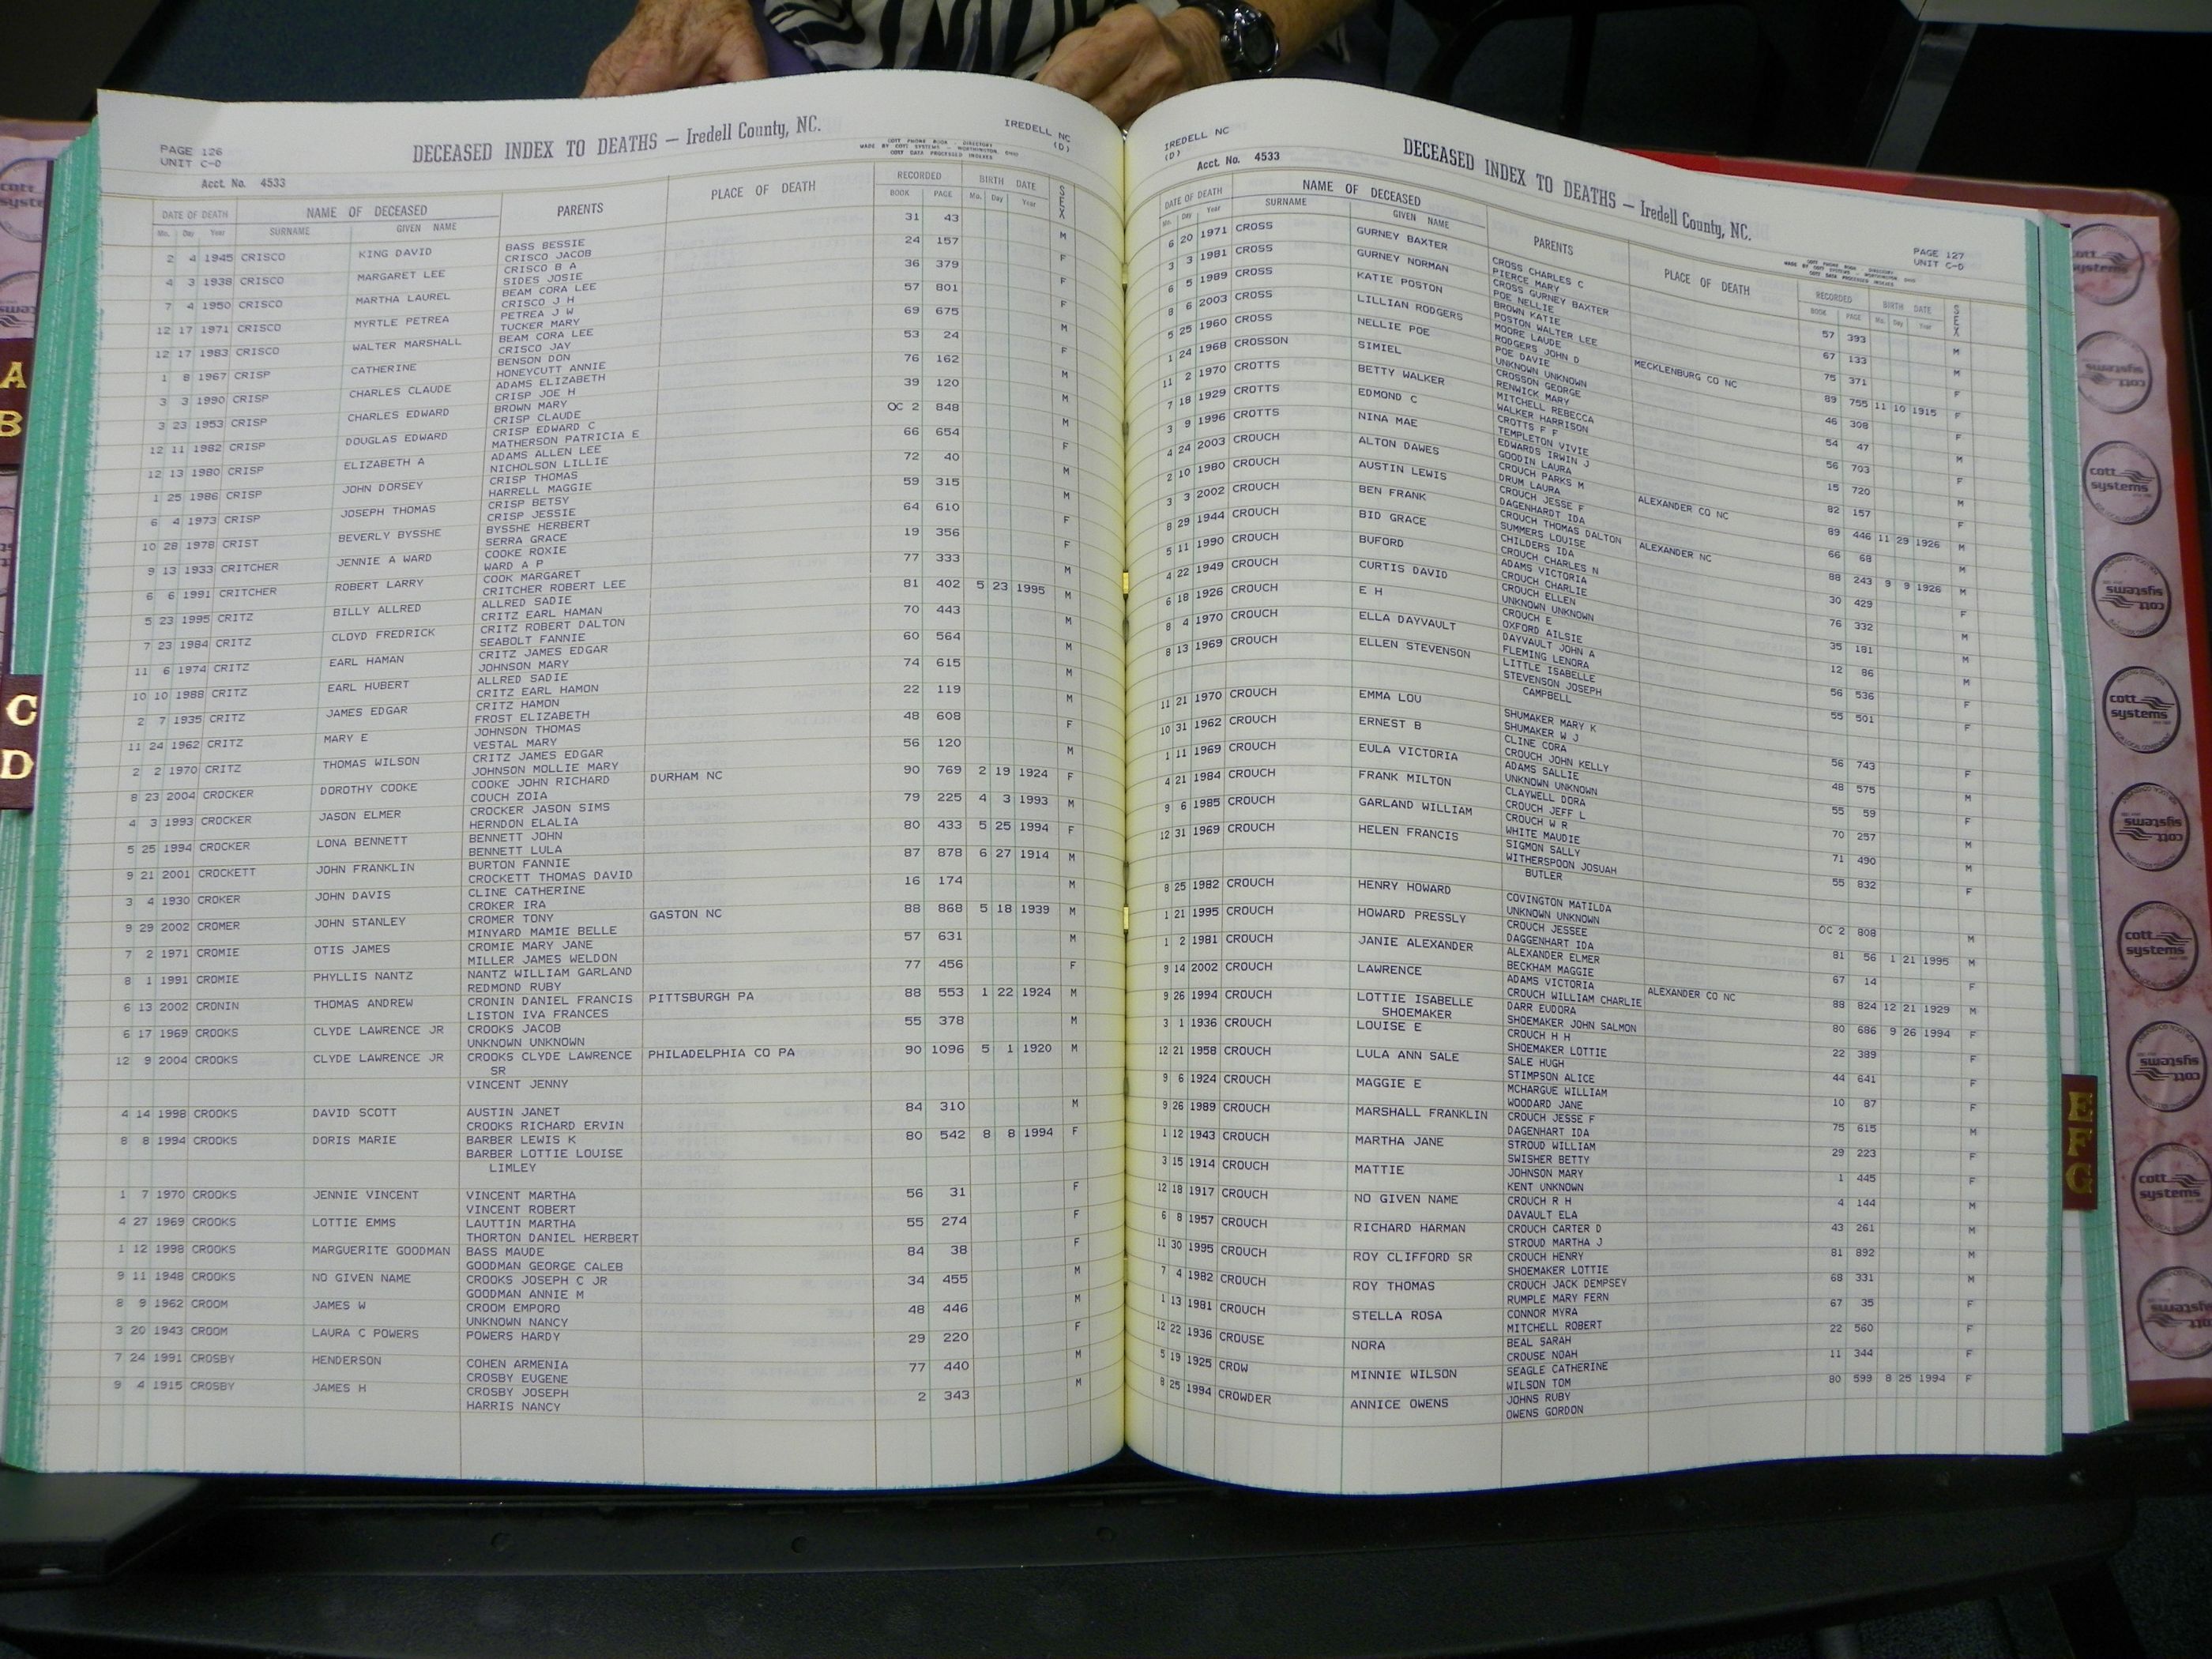 PAGE 126
UNIT C-D
DECEASED INDEX TO DEATHS — Iredell County, NC.
IREDELL NC
(D)
COTT PHONE BOOK - DIRECTORY
MADE BY COTT SYSTEMS - WORTHINGTON, OHIO
COTT DATA PROCESSED INDEXES
Acct. No. 4533
DATE OF DEATH NAME OF DECEASED PARENTS PLACE OF DEATH RECORDED BIRTH DATE SEX
Mo. Day Year SURNAME GIVEN NAME BOOK PAGE Mo. Day Year
2 4 1945 CRISCO KING DAVID BASS BESSIE 31 43 M
CRISCO JACOB
4 3 1938 CRISCO MARGARET LEE CRISCO B A 24 157 F
SIDES JOSIE
7 4 1950 CRISCO MARTHA LAUREL BEAM CORA LEE 36 379 F
CRISCO J H
12 17 1971 CRISCO MYRTLE PETREA PETREA J W 57 801 F
TUCKER MARY
12 17 1983 CRISCO WALTER MARSHALL BEAM CORA LEE 69 675 M
CRISCO JAY
1 8 1967 CRISP CATHERINE BENSON DON 53 24 F
HONEYCUTT ANNIE
3 3 1990 CRISP CHARLES CLAUDE ADAMS ELIZABETH 76 162 M
CRISP JOE H
3 23 1953 CRISP CHARLES EDWARD BROWN MARY 39 120 M
CRISP CLAUDE
12 11 1982 CRISP DOUGLAS EDWARD CRISP EDWARD C OC 2 848 M
MATHERSON PATRICIA E
12 13 1980 CRISP ELIZABETH A ADAMS ALLEN LEE 66 654 F
NICHOLSON LILLIE
1 25 1986 CRISP JOHN DORSEY CRISP THOMAS 72 40 M
HARRELL MAGGIE
6 4 1973 CRISP JOSEPH THOMAS CRISP BETSY 59 315 M
CRISP JESSIE
10 28 1978 CRIST BEVERLY BYSSHE BYSSHE HERBERT 64 610 F
SERRA GRACE
9 13 1933 CRITCHER JENNIE A WARD COOKE ROXIE 19 356 F
WARD A P
6 6 1991 CRITCHER ROBERT LARRY COOK MARGARET 77 333 M
CRITCHER ROBERT LEE
5 23 1995 CRITZ BILLY ALLRED ALLRED SADIE 81 402 5 23 1995 M
CRITZ EARL HAMAN
7 23 1984 CRITZ CLOYD FREDRICK CRITZ ROBERT DALTON 70 443 M
SEABOLT FANNIE
11 6 1974 CRITZ EARL HAMAN CRITZ JAMES EDGAR 60 564 M
JOHNSON MARY
10 10 1988 CRITZ EARL HUBERT ALLRED SADIE 74 615 M
CRITZ EARL HAMON
2 7 1935 CRITZ JAMES EDGAR CRITZ HAMON 22 119 M
FROST ELIZABETH
11 24 1962 CRITZ MARY E JOHNSON THOMAS 48 608 F
VESTAL MARY
2 2 1970 CRITZ THOMAS WILSON CRITZ JAMES EDGAR 56 120 M
JOHNSON MOLLIE MARY
8 23 2004 CROCKER DOROTHY COOKE COOKE JOHN RICHARD DURHAM NC 90 769 2 19 1924 F
COUCH ZOIA
4 3 1993 CROCKER JASON ELMER CROCKER JASON SIMS 79 225 4 3 1993 M
HERNDON ELALIA
5 25 1994 CROCKER LONA BENNETT BENNETT JOHN 80 433 5 25 1994 F
BENNETT LULA
9 21 2001 CROCKETT JOHN FRANKLIN BURTON FANNIE 87 878 6 27 1914 M
CROCKETT THOMAS DAVID
3 4 1930 CROKER JOHN DAVIS CLINE CATHERINE 16 174 M
CROKER IRA
9 29 2002 CROMER JOHN STANLEY CROMER TONY GASTON NC 88 868 5 18 1939 M
MINYARD MAMIE BELLE
7 2 1971 CROMIE OTIS JAMES CROMIE MARY JANE 57 631 M
MILLER JAMES WELDON
8 1 1991 CROMIE PHYLLIS NANTZ NANTZ WILLIAM GARLAND 77 456 F
REDMOND RUBY
6 13 2002 CRONIN THOMAS ANDREW CRONIN DANIEL FRANCIS PITTSBURGH PA 88 553 1 22 1924 M
LISTON IVA FRANCES
6 17 1969 CROOKS CLYDE LAWRENCE JR CROOKS JACOB 55 378 M
UNKNOWN UNKNOWN
12 9 2004 CROOKS CLYDE LAWRENCE JR CROOKS CLYDE LAWRENCE PHILADELPHIA CO PA 90 1096 5 1 1920 M
SR
VINCENT JENNY
4 14 1998 CROOKS DAVID SCOTT AUSTIN JANET 84 310 M
CROOKS RICHARD ERVIN
8 8 1994 CROOKS DORIS MARIE BARBER LEWIS K 80 542 8 8 1994 F
BARBER LOTTIE LOUISE
LIMLEY
1 7 1970 CROOKS JENNIE VINCENT VINCENT MARTHA 56 31 F
VINCENT ROBERT
4 27 1969 CROOKS LOTTIE EMMS LAUTTIN MARTHA 55 274 F
THORTON DANIEL HERBERT
1 12 1998 CROOKS MARGUERITE GOODMAN BASS MAUDE 84 38 F
GOODMAN GEORGE CALEB
9 11 1948 CROOKS NO GIVEN NAME CROOKS JOSEPH C JR 34 455 M
GOODMAN ANNIE M
8 9 1962 CROOM JAMES W CROOM EMPORO 48 446 M
UNKNOWN NANCY
3 20 1943 CROOM LAURA C POWERS POWERS HARDY 29 220 F
7 24 1991 CROSBY HENDERSON COHEN ARMENIA 77 440 M
CROSBY EUGENE
9 4 1915 CROSBY JAMES H CROSBY JOSEPH 2 343 M
HARRIS NANCY
IREDELL NC
(D)
DECEASED INDEX TO DEATHS — Iredell County, NC.
PAGE 127
UNIT C-D
Acct. No. 4533
COTT PHONE BOOK - DIRECTORY
MADE BY COTT SYSTEMS - WORTHINGTON, OHIO
COTT DATA PROCESSED INDEXES
DATE OF DEATH NAME OF DECEASED PARENTS PLACE OF DEATH RECORDED BIRTH DATE SEX
Mo. Day Year SURNAME GIVEN NAME BOOK PAGE Mo. Day Year
6 20 1971 CROSS GURNEY BAXTER CROSS CHARLES C 57 393 M
PIERCE MARY
3 3 1981 CROSS GURNEY NORMAN CROSS GURNEY BAXTER 67 133 M
POE NELLIE
6 5 1989 CROSS KATIE POSTON BROWN KATIE 75 371 F
POSTON WALTER LEE
8 6 2003 CROSS LILLIAN RODGERS MOORE LAUDE MECKLENBURG CO NC 89 755 11 10 1915 F
RODGERS JOHN D
5 25 1960 CROSS NELLIE POE POE DAVIE 46 308 F
UNKNOWN UNKNOWN
1 24 1968 CROSSON SIMIEL CROSSON GEORGE 54 47 M
RENWICK MARY
11 2 1970 CROTTS BETTY WALKER MITCHELL REBECCA 56 703 F
WALKER HARRISON
7 18 1929 CROTTS EDMOND C CROTTS F F 15 720 M
TEMPLETON VIVIE
3 9 1996 CROTTS NINA MAE EDWARDS IRWIN J 82 157 F
GOODIN LAURA
4 24 2003 CROUCH ALTON DAWES CROUCH PARKS M ALEXANDER CO NC 89 446 11 29 1926 M
DRUM LAURA
2 10 1980 CROUCH AUSTIN LEWIS CROUCH JESSE F 66 68 M
DAGENHARDT IDA
3 3 2002 CROUCH BEN FRANK CROUCH THOMAS DALTON ALEXANDER NC 88 243 9 9 1926 M
SUMMERS LOUISE
8 29 1944 CROUCH BID GRACE CHILDERS IDA 30 429 F
CROUCH CHARLES N
5 11 1990 CROUCH BUFORD ADAMS VICTORIA 76 332 M
CROUCH CHARLIE
4 22 1949 CROUCH CURTIS DAVID CROUCH ELLEN 35 181 M
UNKNOWN UNKNOWN
6 18 1926 CROUCH E H CROUCH E 12 86 M
OXFORD AILSIE
8 4 1970 CROUCH ELLA DAYVAULT DAYVAULT JOHN A 56 536 F
FLEMING LENORA
8 13 1969 CROUCH ELLEN STEVENSON LITTLE ISABELLE 55 501 F
STEVENSON JOSEPH
CAMPBELL
11 21 1970 CROUCH EMMA LOU SHUMAKER MARY K 56 743 F
SHUMAKER W J
10 31 1962 CROUCH ERNEST B CLINE CORA 48 575 M
CROUCH JOHN KELLY
1 11 1969 CROUCH EULA VICTORIA ADAMS SALLIE 55 59 F
UNKNOWN UNKNOWN
4 21 1984 CROUCH FRANK MILTON CLAYWELL DORA 70 257 M
CROUCH JEFF L
9 6 1985 CROUCH GARLAND WILLIAM CROUCH W R 71 490 M
WHITE MAUDIE
12 31 1969 CROUCH HELEN FRANCIS SIGMON SALLY 55 832 F
WITHERSPOON JOSUAH
BUTLER
8 25 1982 CROUCH HENRY HOWARD COVINGTON MATILDA OC 2 808 M
UNKNOWN UNKNOWN
1 21 1995 CROUCH HOWARD PRESSLY CROUCH JESSEE 81 56 1 21 1995 M
DAGGENHART IDA
1 2 1981 CROUCH JANIE ALEXANDER ALEXANDER ELMER 67 14 F
BECKHAM MAGGIE
9 14 2002 CROUCH LAWRENCE ADAMS VICTORIA ALEXANDER CO NC 88 824 12 21 1929 M
CROUCH WILLIAM CHARLIE
9 26 1994 CROUCH LOTTIE ISABELLE DARR EUDORA 80 686 9 26 1994 F
SHOEMAKER SHOEMAKER JOHN SALMON
3 1 1936 CROUCH LOUISE E CROUCH H H 22 389 F
SHOEMAKER LOTTIE
12 21 1958 CROUCH LULA ANN SALE SALE HUGH 44 641 F
STIMPSON ALICE
9 6 1924 CROUCH MAGGIE E MCHARGUE WILLIAM 10 87 F
WOODARD JANE
9 26 1989 CROUCH MARSHALL FRANKLIN CROUCH JESSE F 75 615 M
DAGENHART IDA
1 12 1943 CROUCH MARTHA JANE STROUD WILLIAM 29 223 F
SWISHER BETTY
3 15 1914 CROUCH MATTIE JOHNSON MARY 1 445 F
KENT UNKNOWN
12 18 1917 CROUCH NO GIVEN NAME CROUCH R H 4 144 M
DAVAULT ELA
6 8 1957 CROUCH RICHARD HARMAN CROUCH CARTER D 43 261 M
STROUD MARTHA J
11 30 1995 CROUCH ROY CLIFFORD SR CROUCH HENRY 81 892 M
SHOEMAKER LOTTIE
7 4 1982 CROUCH ROY THOMAS CROUCH JACK DEMPSEY 68 331 M
RUMPLE MARY FERN
1 13 1981 CROUCH STELLA ROSA CONNOR MYRA 67 35 F
MITCHELL ROBERT
12 22 1936 CROUSE NORA BEAL SARAH 22 560 F
CROUSE NOAH
5 19 1925 CROW MINNIE WILSON SEAGLE CATHERINE 11 344 F
WILSON TOM
8 25 1994 CROWDER ANNICE OWENS JOHNS RUBY 80 599 8 25 1994 F
OWENS GORDON
A
B
C
D
E
F
G
cott
systems
cott
systems
cott
systems
cott
systems